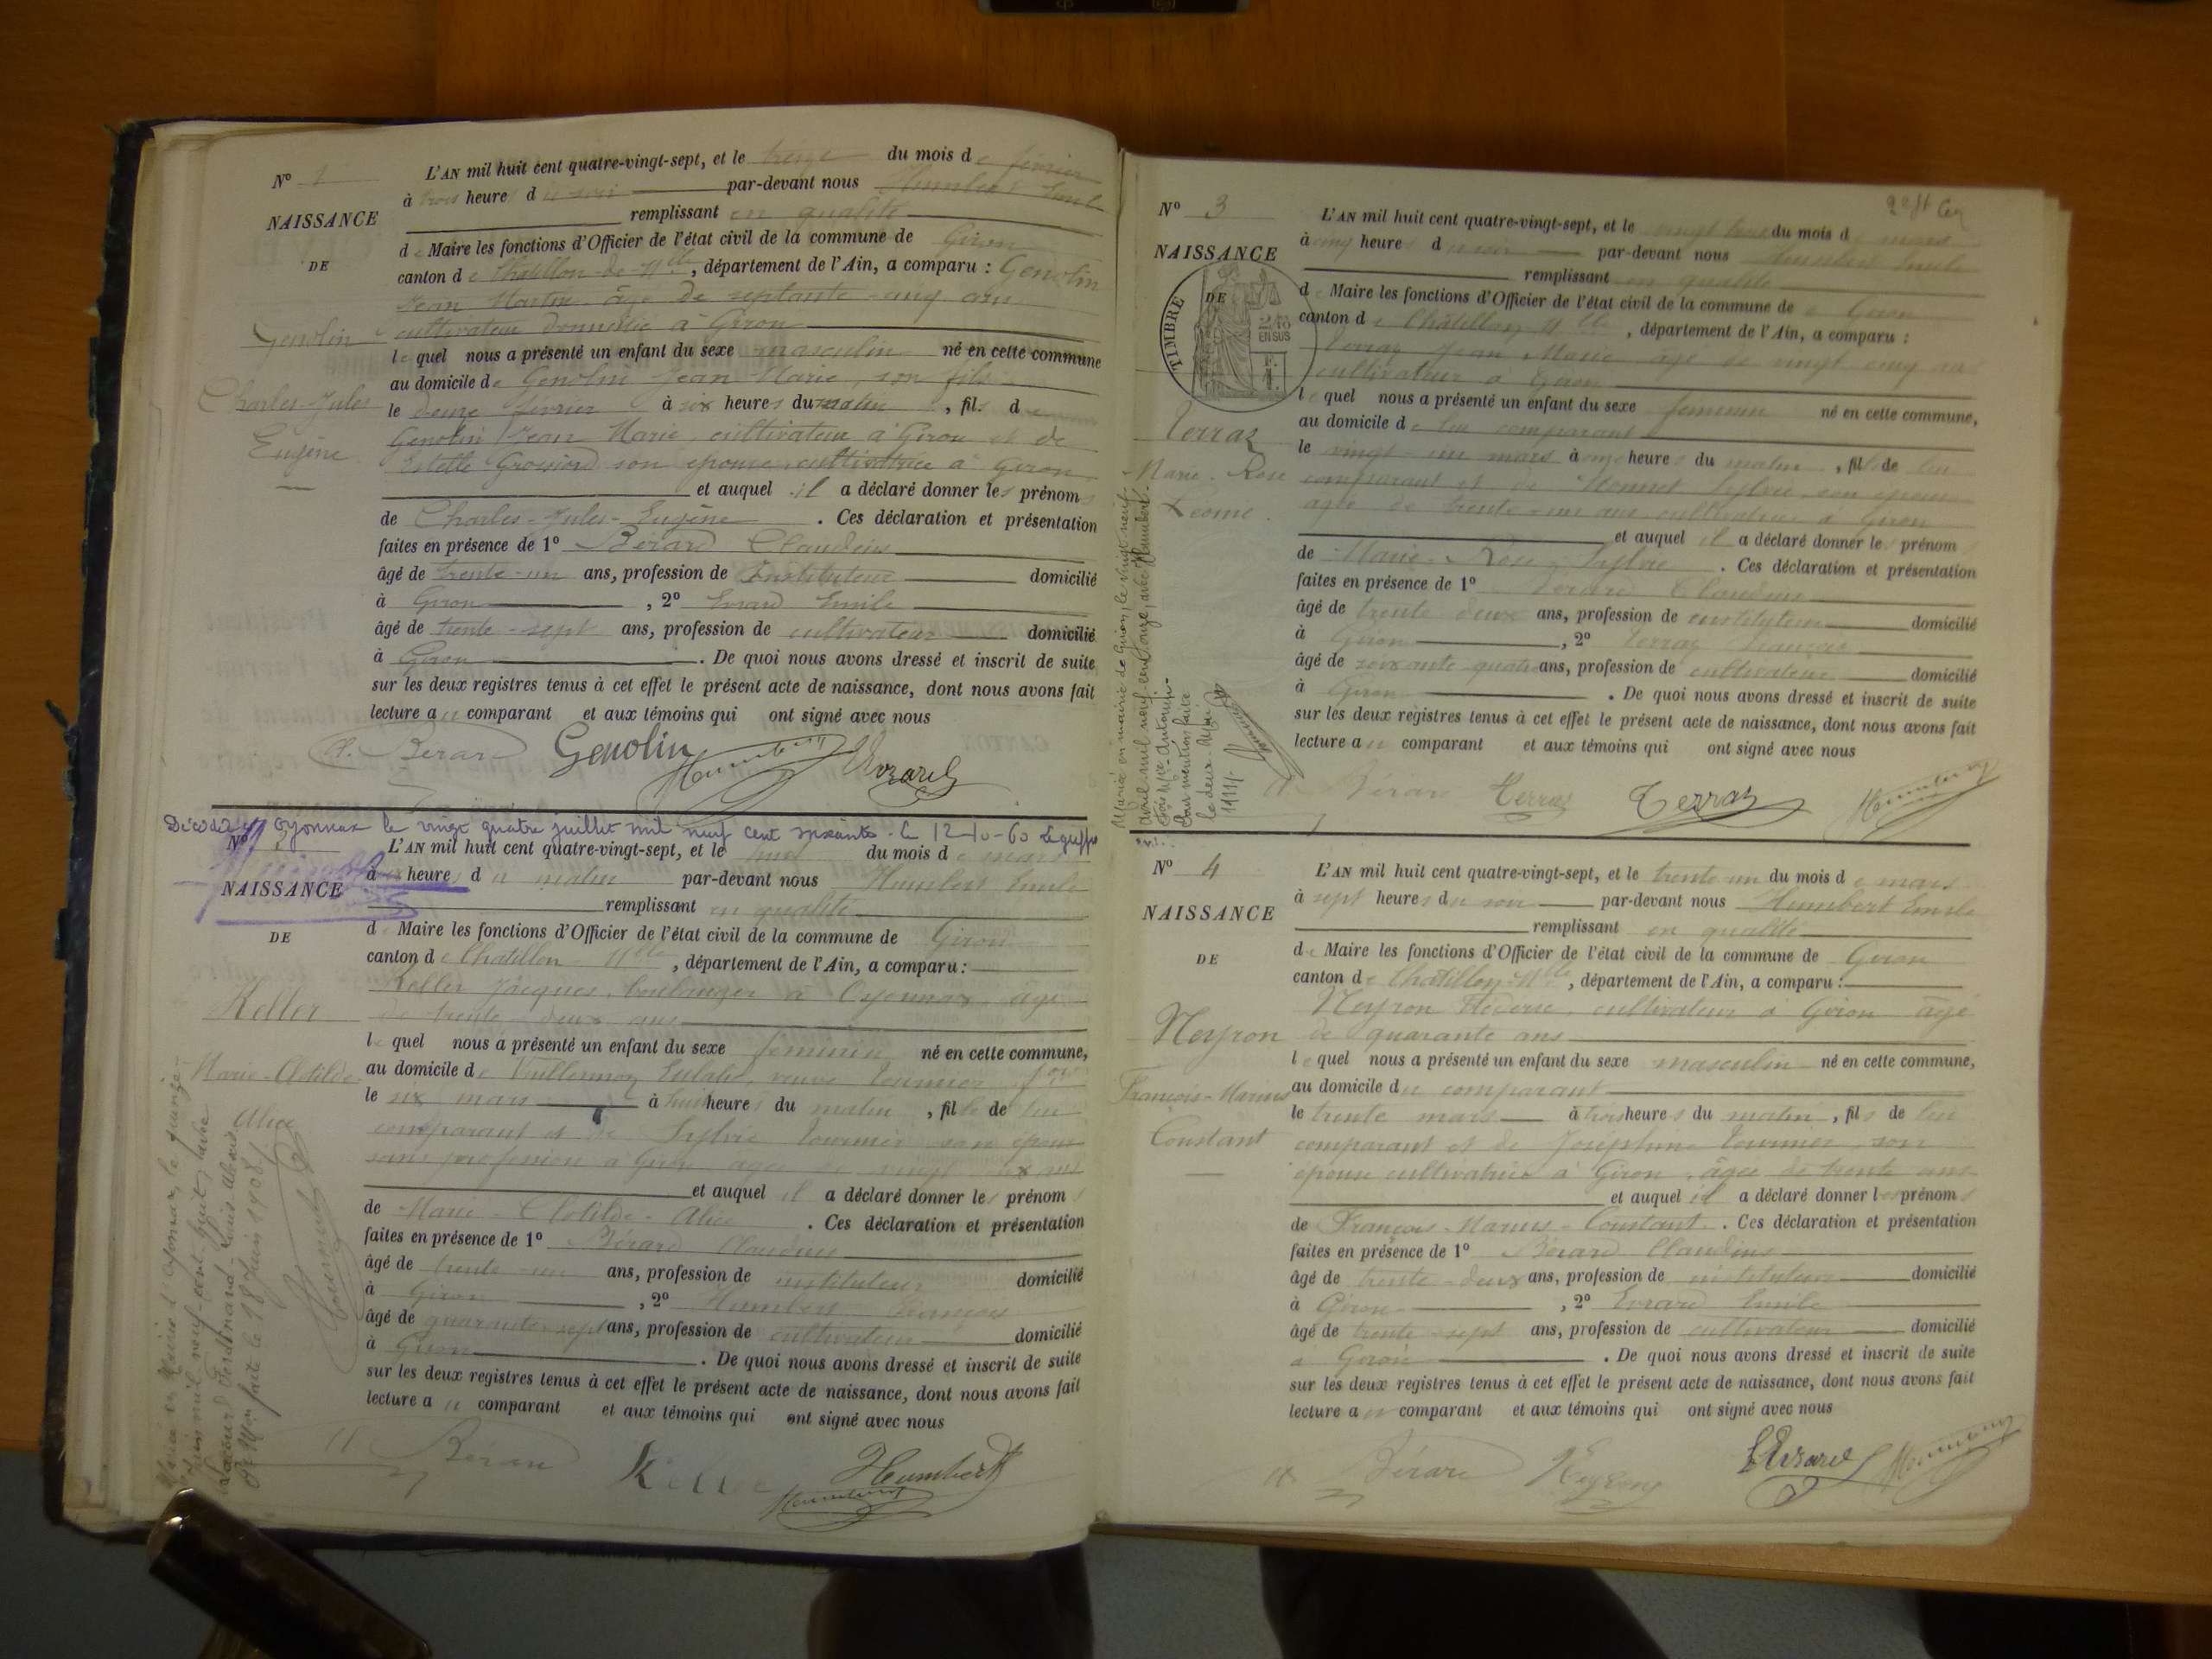 N° 1
NAISSANCE
DE
Genolin
Charles-Jules
Eugène
L'AN mil huit cent quatre-vingt-sept, et le treize du mois de février
à trois heures du soir par-devant nous Humbert Emile
remplissant en qualité
de Maire les fonctions d'Officier de l'état civil de la commune de Giron
canton de Chatillon de Mlle, département de l'Ain, a comparu : Genolin
Jean Marie âgé de septante-cinq ans
cultivateur domicilié à Giron
lequel nous a présenté un enfant du sexe masculin né en cette commune
au domicile de Genolin Jean Marie, son fils
le douze février à six heures du matin, fils de
Genolin Jean Marie, cultivateur à Giron et de
Estelle Grossiord son épouse cultivatrice à Giron
et auquel il a déclaré donner les prénoms
de Charles-Jules-Eugène . Ces déclaration et présentation
faites en présence de 1° Bérard Claudius
âgé de trente-un ans, profession de Instituteur domicilié
à Giron , 2° Evrard Emile
âgé de trente-sept ans, profession de cultivateur domicilié
à Giron . De quoi nous avons dressé et inscrit de suite
sur les deux registres tenus à cet effet le présent acte de naissance, dont nous avons fait
lecture au comparant et aux témoins qui ont signé avec nous
Bérard Genolin Humbert Evrard
Décédée à Oyonnax le vingt quatre juillet mil neuf cent soixante. Le 12-10-60
N° 2
NAISSANCE
DE
Keller
Marie-Clotilde
Alice
Mariée en Mairie d'Oyonnax, le quinze
Juin mil neuf-cent-huit, avec
Ferdinand-Louis
faite le 18 Juin 1908
L'AN mil huit cent quatre-vingt-sept, et le huit du mois de mars
à heures du matin par-devant nous Humbert Emile
remplissant en qualité
de Maire les fonctions d'Officier de l'état civil de la commune de Giron
canton de Chatillon Mlle, département de l'Ain, a comparu :
Keller Jacques, boulanger à Oyonnax, âgé
de trente-deux ans
lequel nous a présenté un enfant du sexe féminin né en cette commune,
au domicile de Vuillermoz Eulalie, veuve Tournier
le six mars à huit heures du matin, fille de lui
comparant et de Sylvie Tournier son épouse
sans profession à Giron âgée de vingt ans
et auquel il a déclaré donner les prénoms
de Marie-Clotilde-Alice . Ces déclaration et présentation
faites en présence de 1° Bérard Claudius
âgé de trente-un ans, profession de instituteur domicilié
à Giron , 2° Humbert François
âgé de quarante-sept ans, profession de cultivateur domicilié
à Giron . De quoi nous avons dressé et inscrit de suite
sur les deux registres tenus à cet effet le présent acte de naissance, dont nous avons fait
lecture au comparant et aux témoins qui ont signé avec nous
Bérard Keller Humbert
Humbert
N° 3
NAISSANCE
DE
TIMBRE
2/10 EN SUS
Terraz
Marie-Rose
Leonie
Mariée en mairie de Giron, le vingt-neuf
avril mil neuf cent onze, avec Humbert
Pour mention faite
le deux Mai
1911
L'AN mil huit cent quatre-vingt-sept, et le vingt trois du mois de mars
à cinq heures du soir par-devant nous Humbert Emile
remplissant en qualité
de Maire les fonctions d'Officier de l'état civil de la commune de Giron
canton de Châtillon Mlle, département de l'Ain, a comparu :
Terraz Jean Marie âgé de vingt cinq ans
cultivateur à Giron
lequel nous a présenté un enfant du sexe féminin né en cette commune,
au domicile de lui comparant
le vingt-un mars à onze heures du matin, fille de lui
comparant et de Sylvie son épouse
âgée de trente-un ans cultivatrice à Giron
et auquel il a déclaré donner les prénoms
de Marie-Rose . Ces déclaration et présentation
faites en présence de 1° Bérard Claudius
âgé de trente deux ans, profession de instituteur domicilié
à Giron , 2° Terraz François
âgé de soixante-quatre ans, profession de cultivateur domicilié
à Giron . De quoi nous avons dressé et inscrit de suite
sur les deux registres tenus à cet effet le présent acte de naissance, dont nous avons fait
lecture au comparant et aux témoins qui ont signé avec nous
Bérard Terraz Terraz Humbert
N° 4
NAISSANCE
DE
Neyron
François-Marius
Constant
L'AN mil huit cent quatre-vingt-sept, et le trente-un du mois de mars
à sept heures du soir par-devant nous Humbert Emile
remplissant en qualité
de Maire les fonctions d'Officier de l'état civil de la commune de Giron
canton de Chatillon-Mlle, département de l'Ain, a comparu :
Neyron cultivateur à Giron âgé
de quarante ans
lequel nous a présenté un enfant du sexe masculin né en cette commune,
au domicile du comparant
le trente mars à trois heures du matin, fils de lui
comparant et de Joséphine Tournier, son
épouse cultivatrice à Giron, âgée de trente ans
et auquel il a déclaré donner les prénoms
de François-Marius-Constant . Ces déclaration et présentation
faites en présence de 1° Bérard Claudius
âgé de trente-deux ans, profession de instituteur domicilié
à Giron , 2° Evrard Emile
âgé de trente-sept ans, profession de cultivateur domicilié
à Giron . De quoi nous avons dressé et inscrit de suite
sur les deux registres tenus à cet effet le présent acte de naissance, dont nous avons fait
lecture au comparant et aux témoins qui ont signé avec nous
Bérard Neyron Evrard Humbert